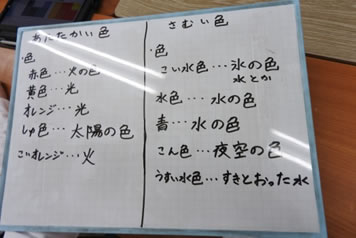 あたたかい色
・色
赤色…火の色
黄色…光
オレンジ…光
しゅ色…太陽の色
こいオレンジ…火
さむい色
・色
こい水色…氷の色
水とか
水色…水の色
青…水の色
こん色…夜空の色
うすい水色…すきとおった水